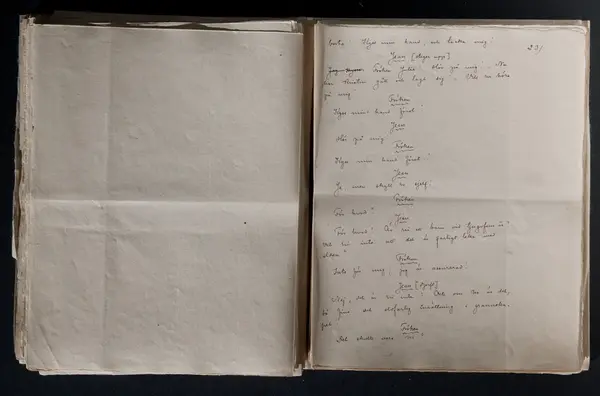 23/
min hand, och tacka mig!
Jean [stiger upp]
Fröken Julie! Hör på mig! Nu
har Kristin gått och lagt sig! Vill ni höra
på mig
Fröken
Kyss min hand först!
Jean
Hör på mig
Fröken
Kyss min hand först!
Jean
Ja men skyll er sjelf!
Fröken
För hvad?
Jean
För hvad! Är ni ett barn vid
Vet ni inte att det är farligt leka med
elden?
Fröken
Inte för mig; jag är assurerad!
Jean
Nej, det är ni inte! Och om ni är det,
så finns det eldfarlig inredning i grannskapet!
Fröken
Det skulle vara ni?